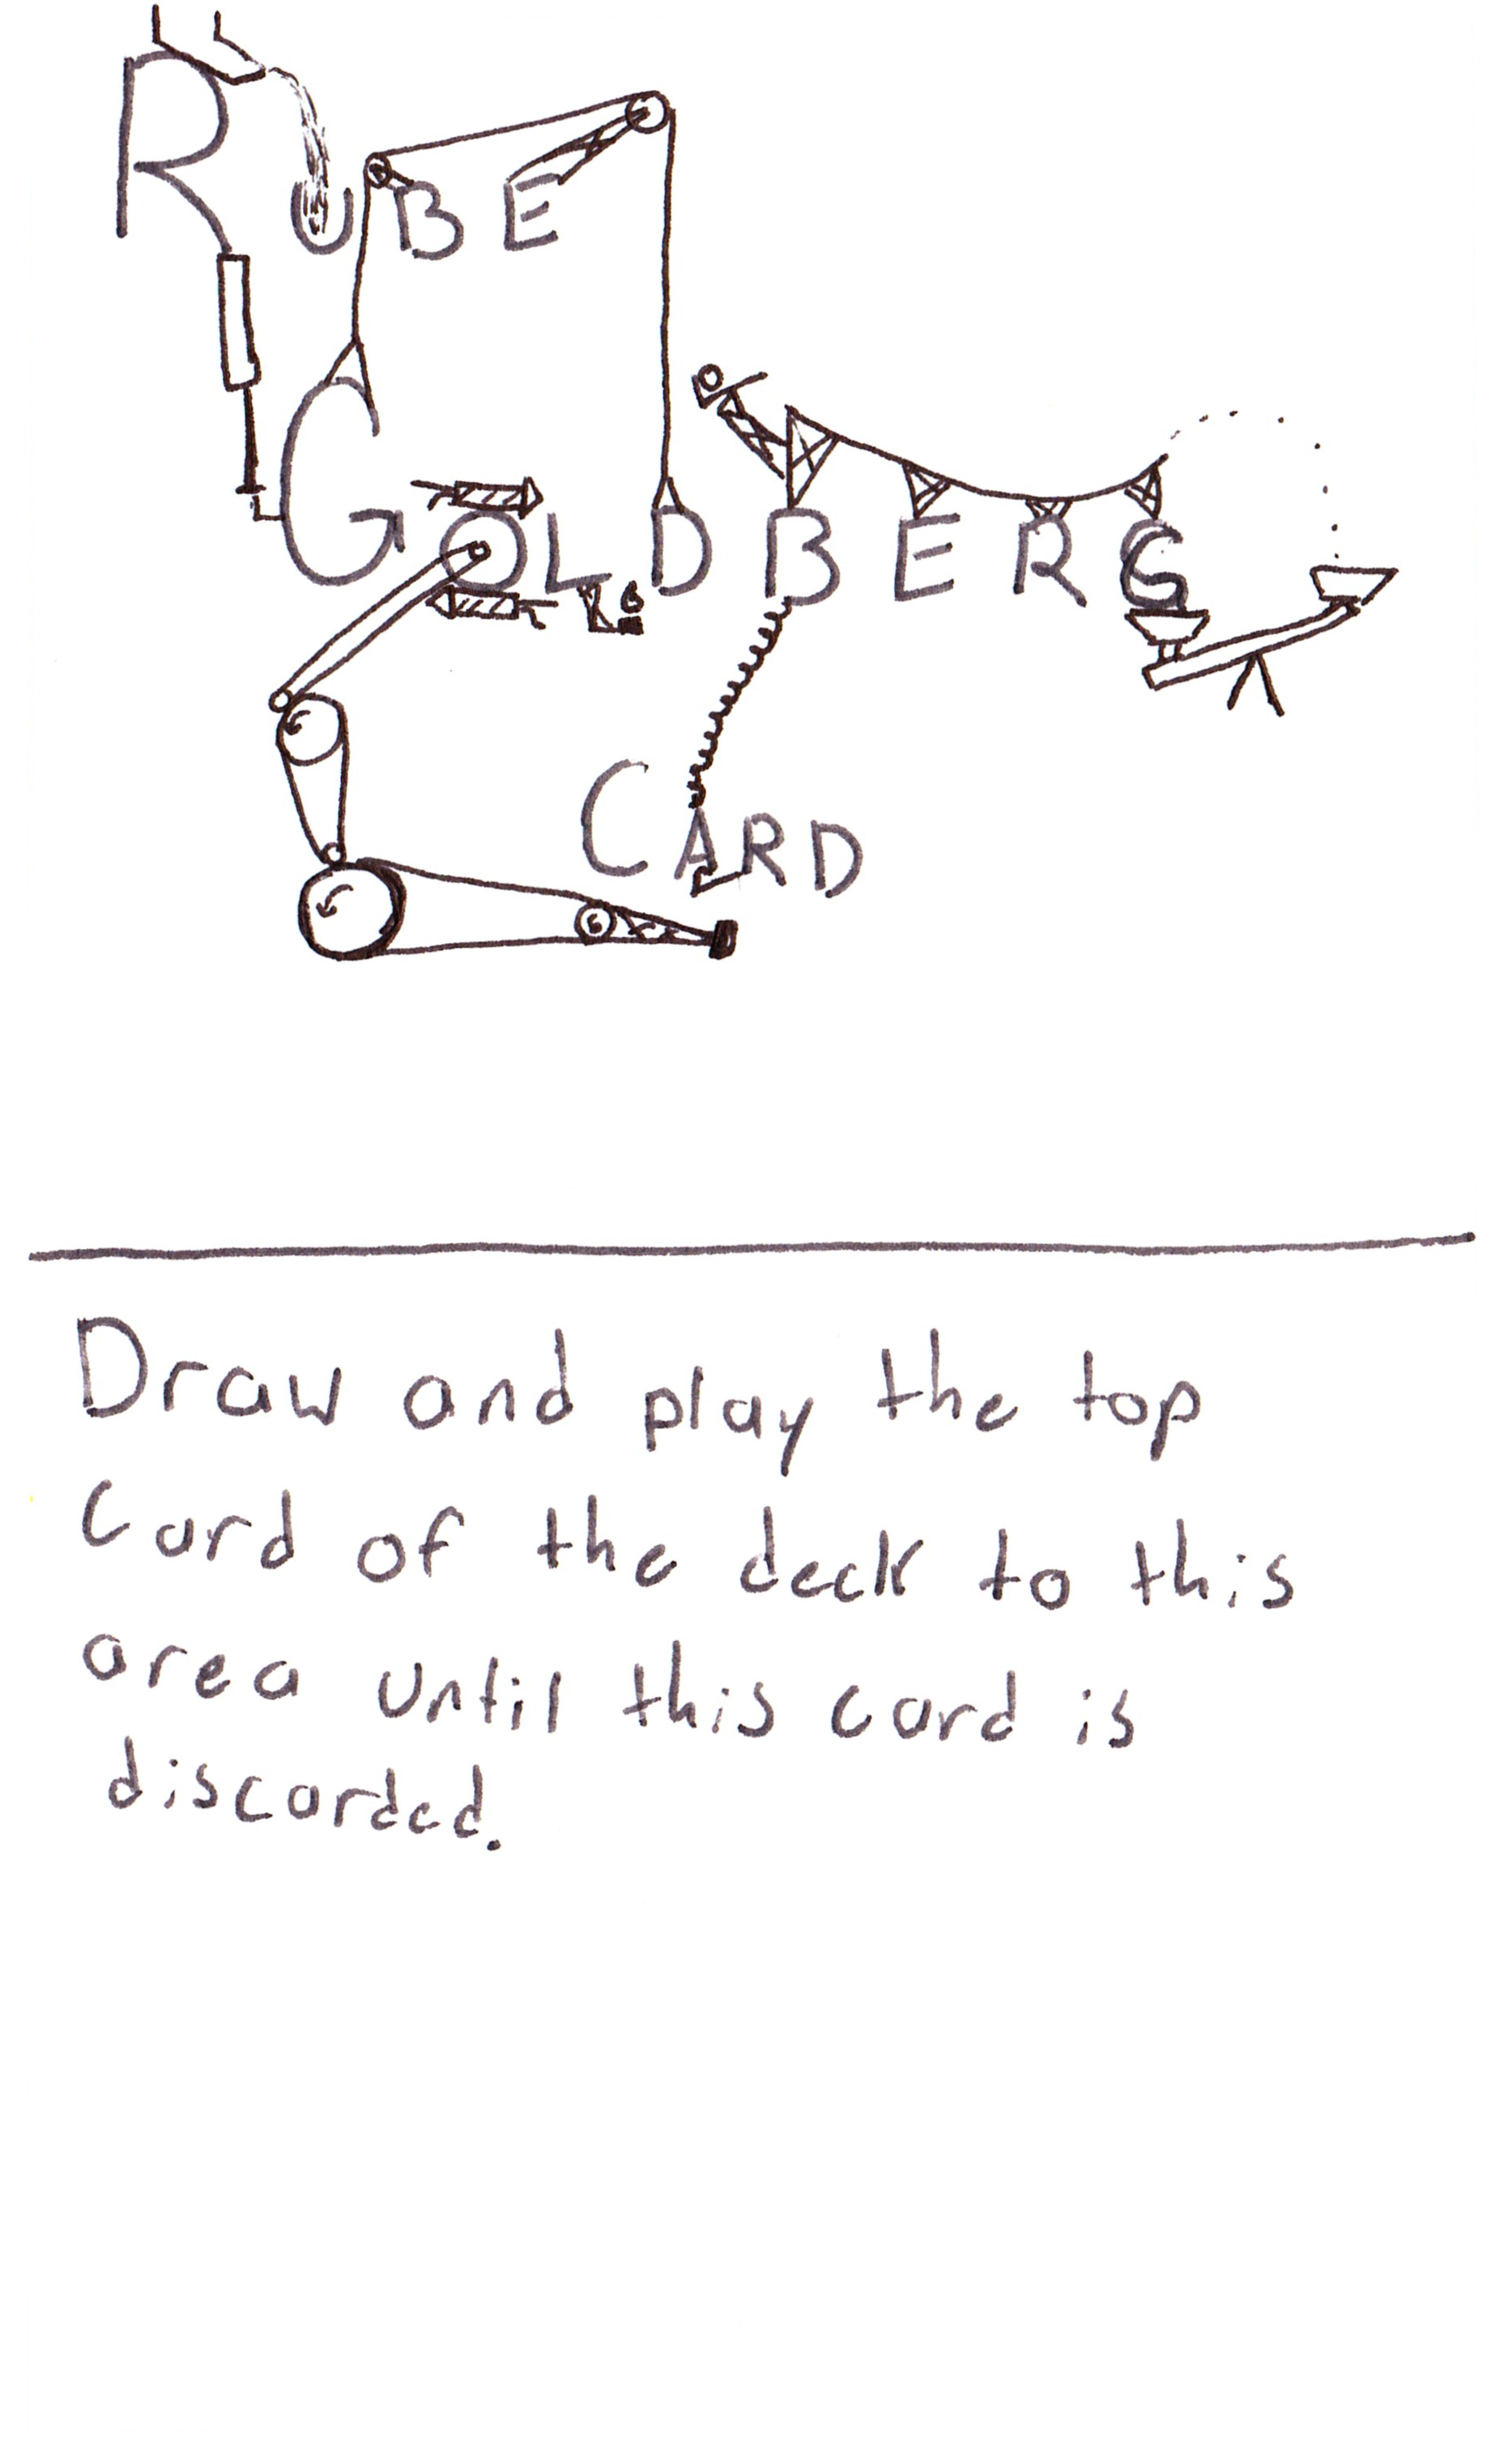 RUBE
GOLDBERG
CARD
Draw and play the top
Card of the deck to this
area until this card is
discarded.